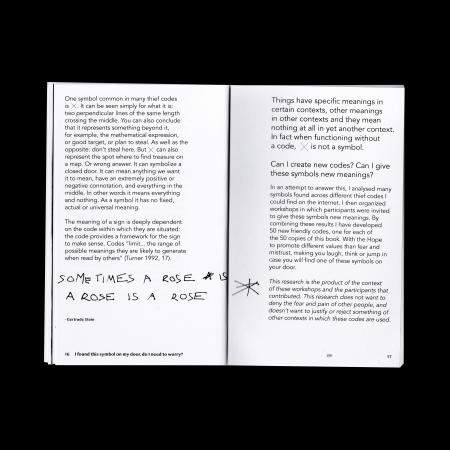 One symbol common in many thief codes
is X. It can be seen simply for what it is:
two perpendicular lines of the same length
crossing the middle. You can also conclude
that it represents something beyond it,
for example, the mathematical expression,
or good target, or plan to steal. As well as the
opposite: don't steal here. But X can also
represent the spot where to find treasure on
a map. Or wrong answer. It can symbolize a
closed door. It can mean anything we want
it to mean, have an extremely positive or
negative connotation, and everything in the
middle. In other words it means everything
and nothing. As a symbol it has no fixed,
actual or universal meaning.
The meaning of a sign is deeply dependent
on the code within which they are situated:
the code provides a framework for the sign
to make sense. Codes "limit... the range of
possible meanings they are likely to generate
when read by others" (Turner 1992, 17).
SOMETIMES A ROSE IS
A ROSE IS A ROSE
- Gertrude Stein
16 I found this symbol on my door, do I need to worry?
Things have specific meanings in
certain contexts, other meanings
in other contexts and they mean
nothing at all in yet another context.
In fact when functioning without
a code, X is not a symbol.
Can I create new codes? Can I give
these symbols new meanings?
In an attempt to answer this, I analysed many
symbols found across different thief codes I
could find on the internet. I then organized
workshops in which participants were invited
to give these symbols new meanings. By
combining these results I have developed
50 new friendly codes, one for each of
the 50 copies of this book. With the Hope
to promote different values than fear and
mistrust, making you laugh, think or jump in
case you will find one of these symbols on
your door.
This research is the product of the context
of these workshops and the participants that
contributed. This research does not want to
deny the fear and pain of other people, and
doesn't want to justify or reject something of
other contexts in which these codes are used.
17